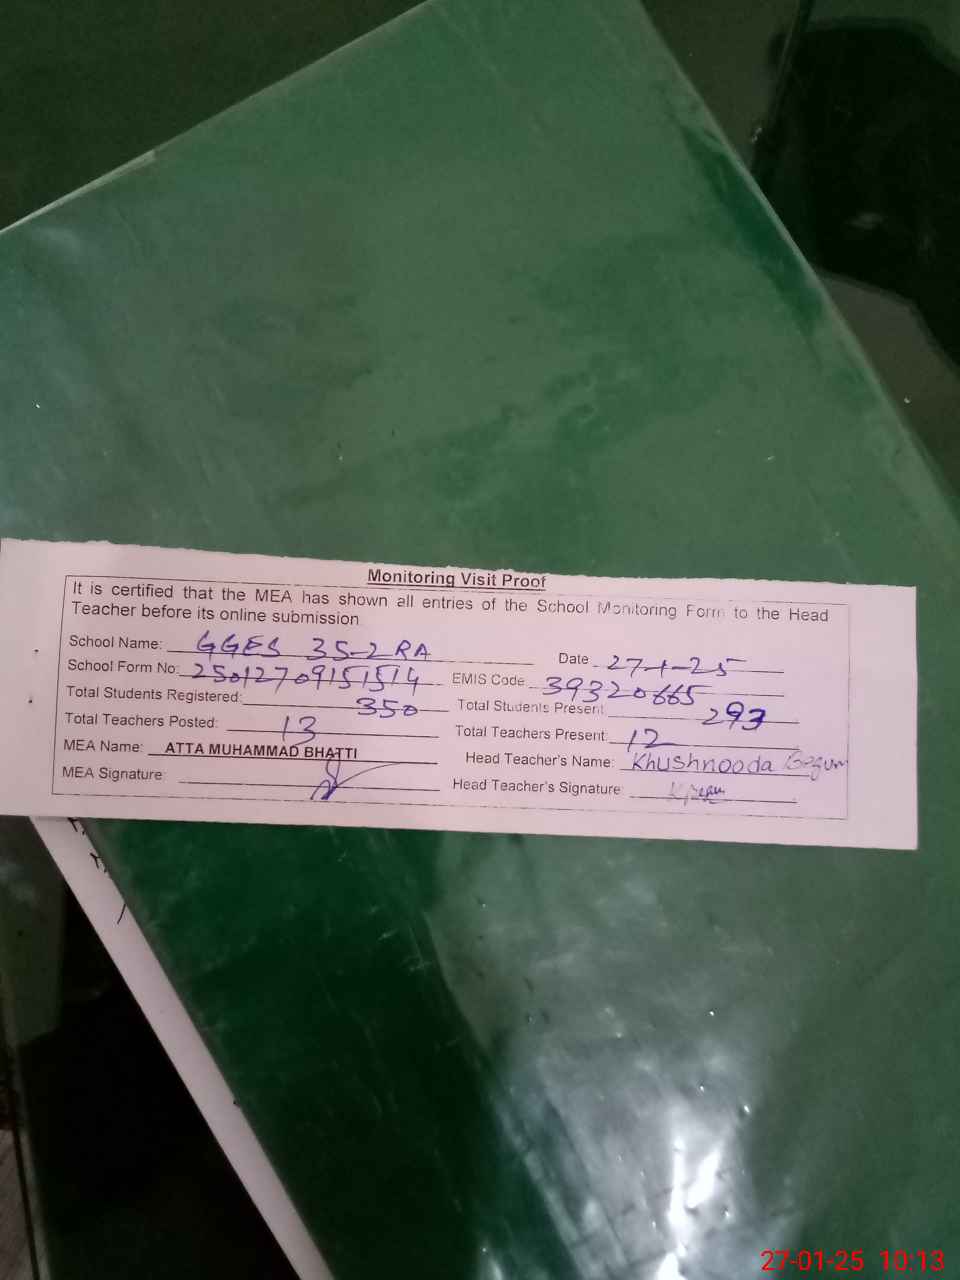 Monitoring Visit Proof
It is certified that the MEA has shown all entries of the School Monitoring Form to the Head
Teacher before its online submission
School Name: GGES 35-2RA
Date 27-1-25
School Form No: 25012709151514
EMIS Code 39320665
Total Students Registered: 350
Total Students Present 293
Total Teachers Posted: 13
Total Teachers Present: 12
MEA Name: ATTA MUHAMMAD BHATTI
Head Teacher's Name: Khushnooda Begum
MEA Signature:
Head Teacher's Signature:
27-01-25 10:13